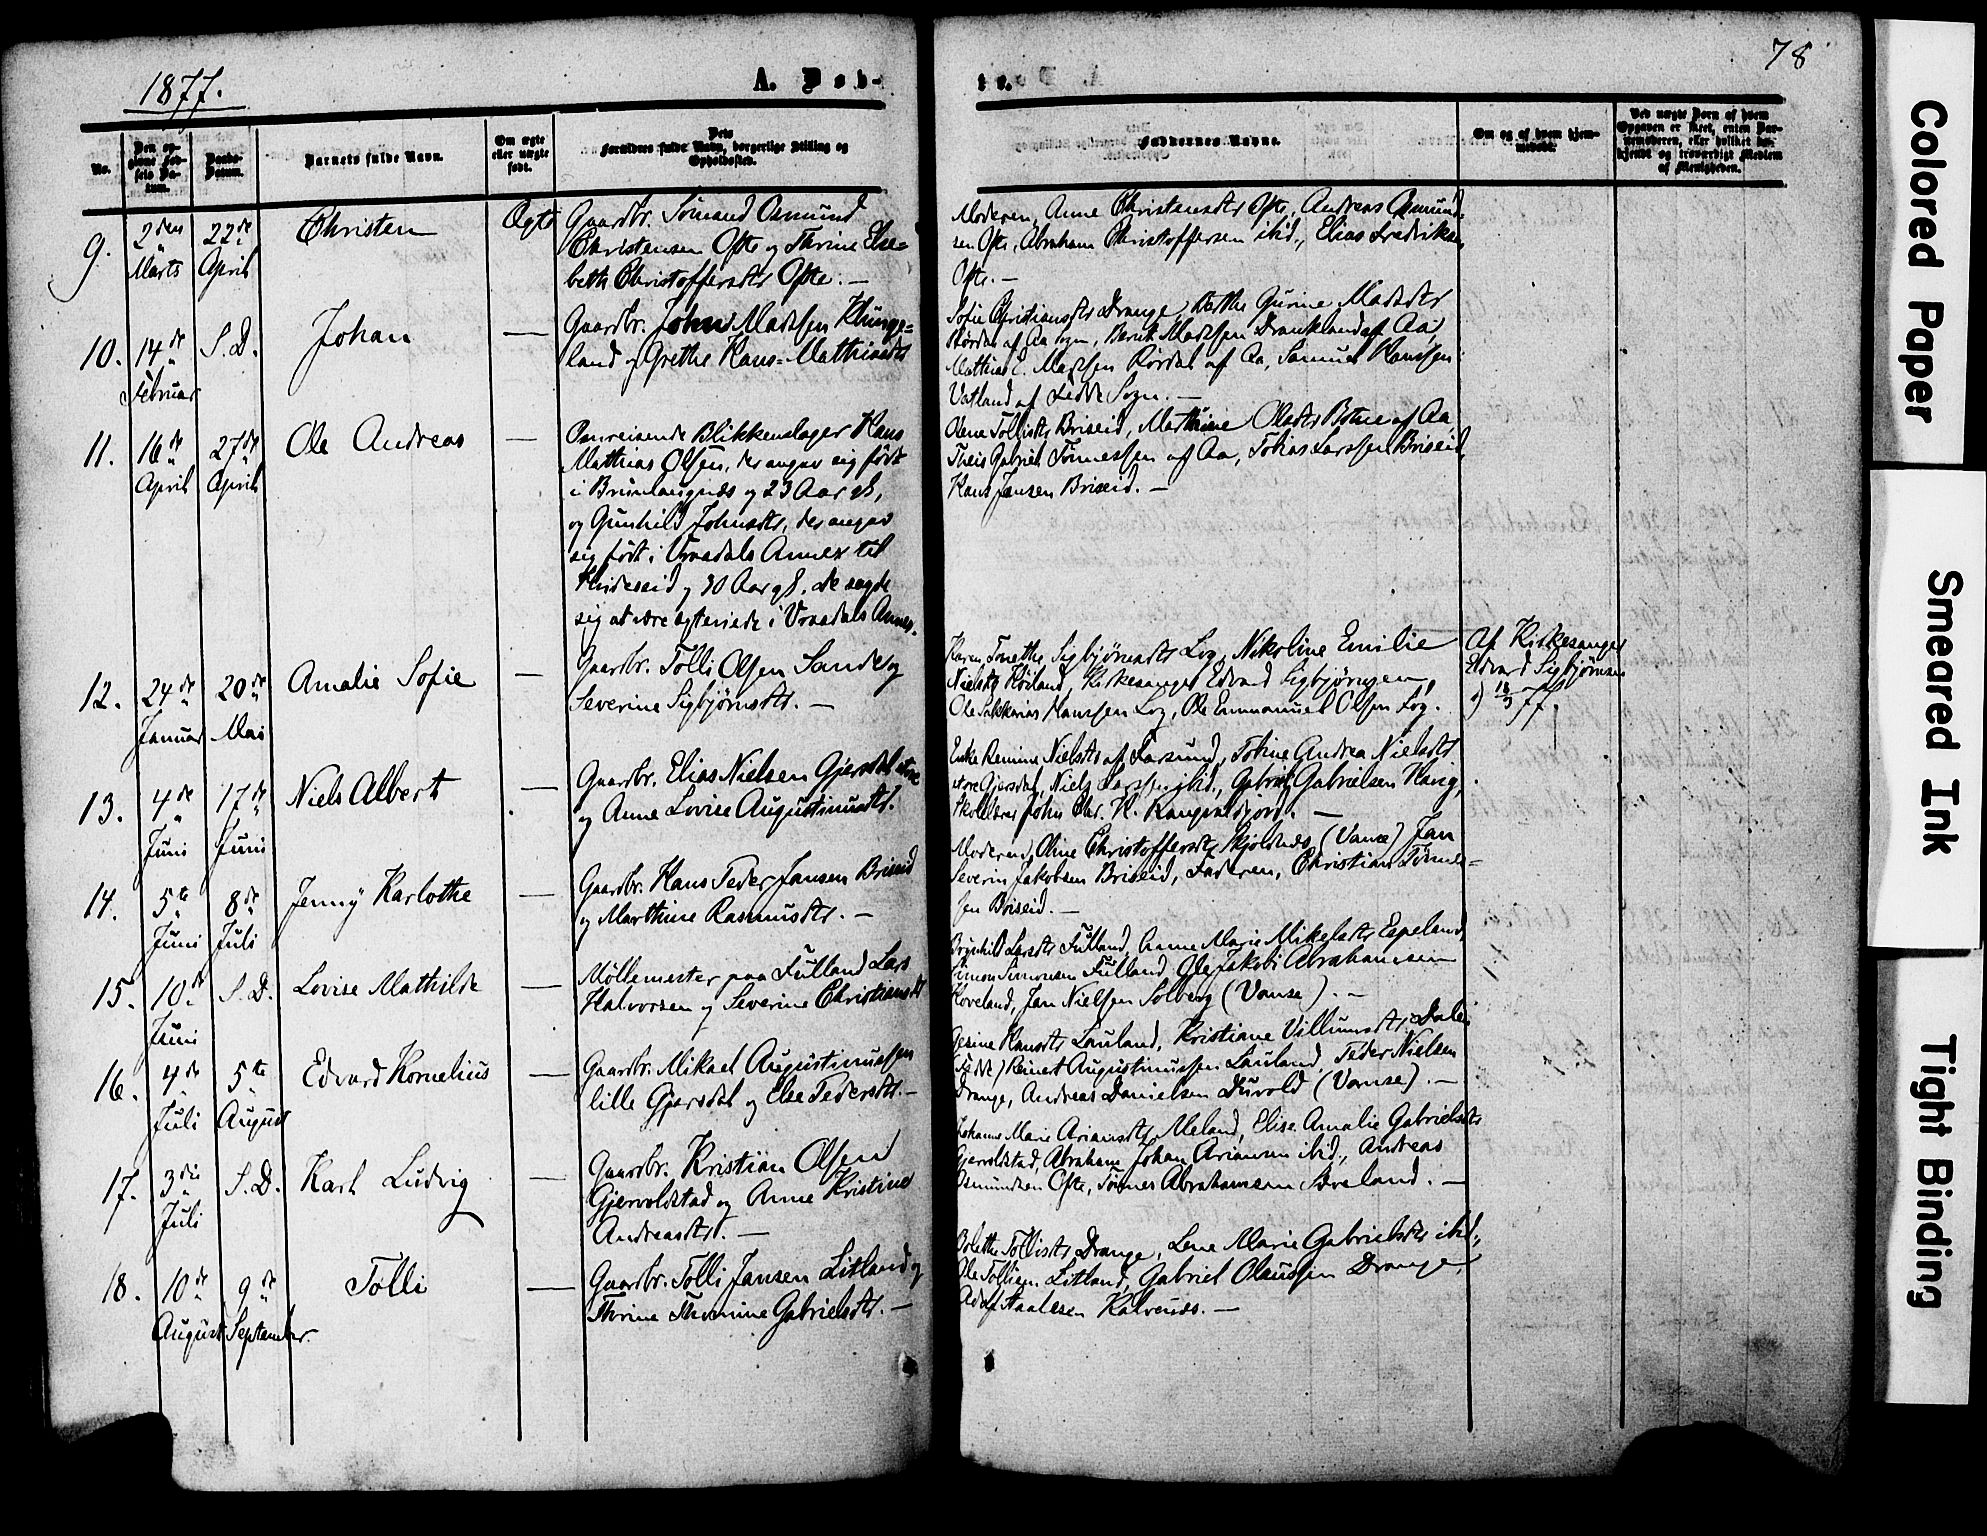 1877.
A. Døb-
te.
78
No.
Den opgivne Fødsels Datum.
Daabs-Datum.
Barnets fulde Navn.
Om ægte eller uægte født.
Dets Forældres fulde Navn, borgerlige Stilling og Opholdssted.
Faddernes Navne.
Om og af hvem hjemmedøbt.
Ved uægte Børn af hvem Opgaven er skeet, enten Barnemoderen, eller hvilket bekjendt og troværdigt Medlem af Menigheden.
9.
2den Marts
22de April
Christen
Ægte
Gaardbr. Sømand Osmund
Christensen Ofte og Thrine Else-
beth Christoffersdtr Ofte. —
Moderen, Anne Christensdtr Ofte, Andreas Osmund-
sen Ofte, Abraham Christoffersen ibid., Elias Fredriksen
Ofte. —
10.
14de Februar
S. D.
Johan
—
Gaardbr. John Madssen Klunge-
land og Grethe Hans-Mathiasdtr
Sofie Christiansdtr Drange, Berthe Gurine Madsdtr
Rørdal af Aa Sogn, Bernt Madssen Drankland af Aa,
Mathias E. Madssen Rørdal af Aa, Samuel Hanssen
Vatland af Fedde Sogn. —
11.
16de April
27de April
Ole Andreas
—
Omreisende Blikkenslager Hans
Mathias Olsen, der angav sig født
i Brunlangnæs og 23 Aar gl.,
og Gunhild Johnsdtr, der angav
sig født i Vraadals Annex til
Hvideseid og 30 Aar gl. de sagde
sig at være ægteviede i Vraadals Annex.
Olene Tollisdtr Briseid, Marthine Olsdtr Botne af Aa,
Theis Gabriel Tønnessen af Aa, Tobias Larssen Briseid,
Hans Jansen Briseid. —
12.
24de Januar
20de Mai
Amalie Sofie
—
Gaardbr. Tolli Olsen Sande og
Severine Sigbjørnsdtr. —
Karen Tonethe Sigbjørnsdtr Log, Nikoline Emilie
Nielsdtr Høiland, Kirkesanger Edvard Sigbjørnsen,
Ole Sakkarias Hanssen Log, Ole Emmanuel Olsen Log.
Af Kirkesanger
Edvard Sigbjørnsen
13.
4de Juni
17de Juni
Niels Albert
—
Gaardbr. Elias Nielsen Gjersdal store
og Anne Lovise Augustinusdtr.
Enke Remine Nielsdtr af Farsund, Tobine Andrea Nielsdtr
store Gjersdal, Niels Larssen ibid., Gabriel Gabrielsen Haug,
Skolelærer John Chr. H. Rangvaldsjord. —
14.
5te Juni
8de Juli
Jenny Karlothe
—
Gaardbr. Hans Peder Jansen Briseid
og Marthine Rasmusdtr. —
Moderen, Oline Christoffersdtr Skjoldnæs (Vanse) Jan
Severin Jakobsen Briseid, Faderen, Christian Tønnes-
sen Briseid. —
15.
10de Juni
S. D.
Lovise Mathilde
—
Møllemester paa Fuland Lars
Halvorsen og Severine Christiansdtr
Brynhild Larsdtr Fulland, Anne Marie Mikelsdtr Espeland,
Simon Simonsen Fulland, Ole Jakobi Abrahamsen
Hoveland, Jan Nielssen Solberg (Vanse). —
16.
4de Juli
5te August
Edvard Kornelius
—
Gaardbr. Mikael Augustinussen
lille Gjersdal og Else Pedersdtr. —
Gesine Hansdtr Lauland, Kristiane Villumsdtr Dale
(Fedde) Reinert Augustinussen Lauland, Peder Nielsen
Drange, Andreas Danielsen Duvold (Vanse). —
17.
3die Juli
S. D.
Karl Ludvig
—
Gaardbr. Kristian Olsen
Gjervoldstad og Anne Kristine
Andreasdtr. —
Johanne Marie Ariansdtr Meland, Elise Amalie Gabrielsdtr
Gjervoldstad, Abraham Johan Ariansen ibid., Andreas
Osmundsen Ofte, Tønnes Abrahamsen Braland. —
18.
10de August
9de September.
Tolli
—
Gaardbr. Tolli Jansen Litland og
Thrine Thomine Gabrielsdtr. —
Bolette Tollisdtr Drange, Lene Marie Gabrielsdtr ibid.,
Ole Tollisen Litland, Gabriel Olaussen Drange,
Adolf Aalesen Kalvenæs. —
Colored Paper
Smeared Ink
Tight Binding